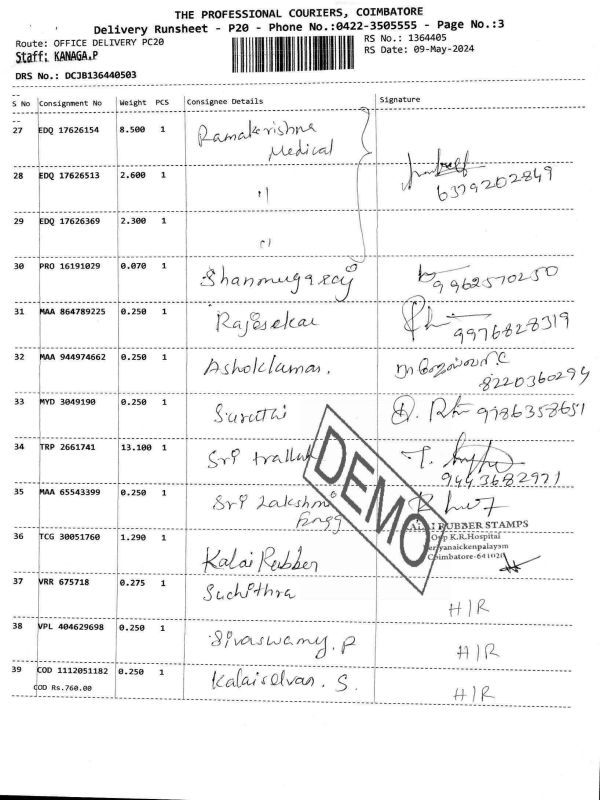 THE PROFESSIONAL COURIERS, COIMBATORE
Delivery Runsheet - P20 - Phone No.:0422-3505555 - Page No.:3
Route: OFFICE DELIVERY PC20
RS No.: 1364405
Staff: KANAGA.P
RS Date: 09-May-2024
DRS No.: DCJB136440503
S No Consignment No Weight PCS Consignee Details Signature
27 EDQ 17626154 8.500 1 Ramakrishna
Medical
28 EDQ 17626513 2.600 1 11
6379202849
29 EDQ 17626369 2.300 1 11
30 PRO 16191029 0.070 1 Shanmugaraj
9962570250
31 MAA 864789225 0.250 1 Rajesekar
9976828319
32 MAA 944974662 0.250 1 Ashokkumar.
8220360294
33 MYD 3049190 0.250 1 Suruthi 9786358651
34 TRP 2661741 13.100 1 Sri
9443682971
35 MAA 65543399 0.250 1 Sri Lakshmi
Engg
KALAI RUBBER STAMPS
Opp K.R.Hospital
Periyanaickenpalayam
Coimbatore-641020
36 TCG 30051760 1.290 1 Kalai Rubber
37 VRR 675718 0.275 1 Suchithra H/R
38 VPL 404629698 0.250 1 Sivaswamy. P H/R
39 COD 1112051182 0.250 1 Kalaiselvan. S. H/R
COD Rs.760.00
DEMO